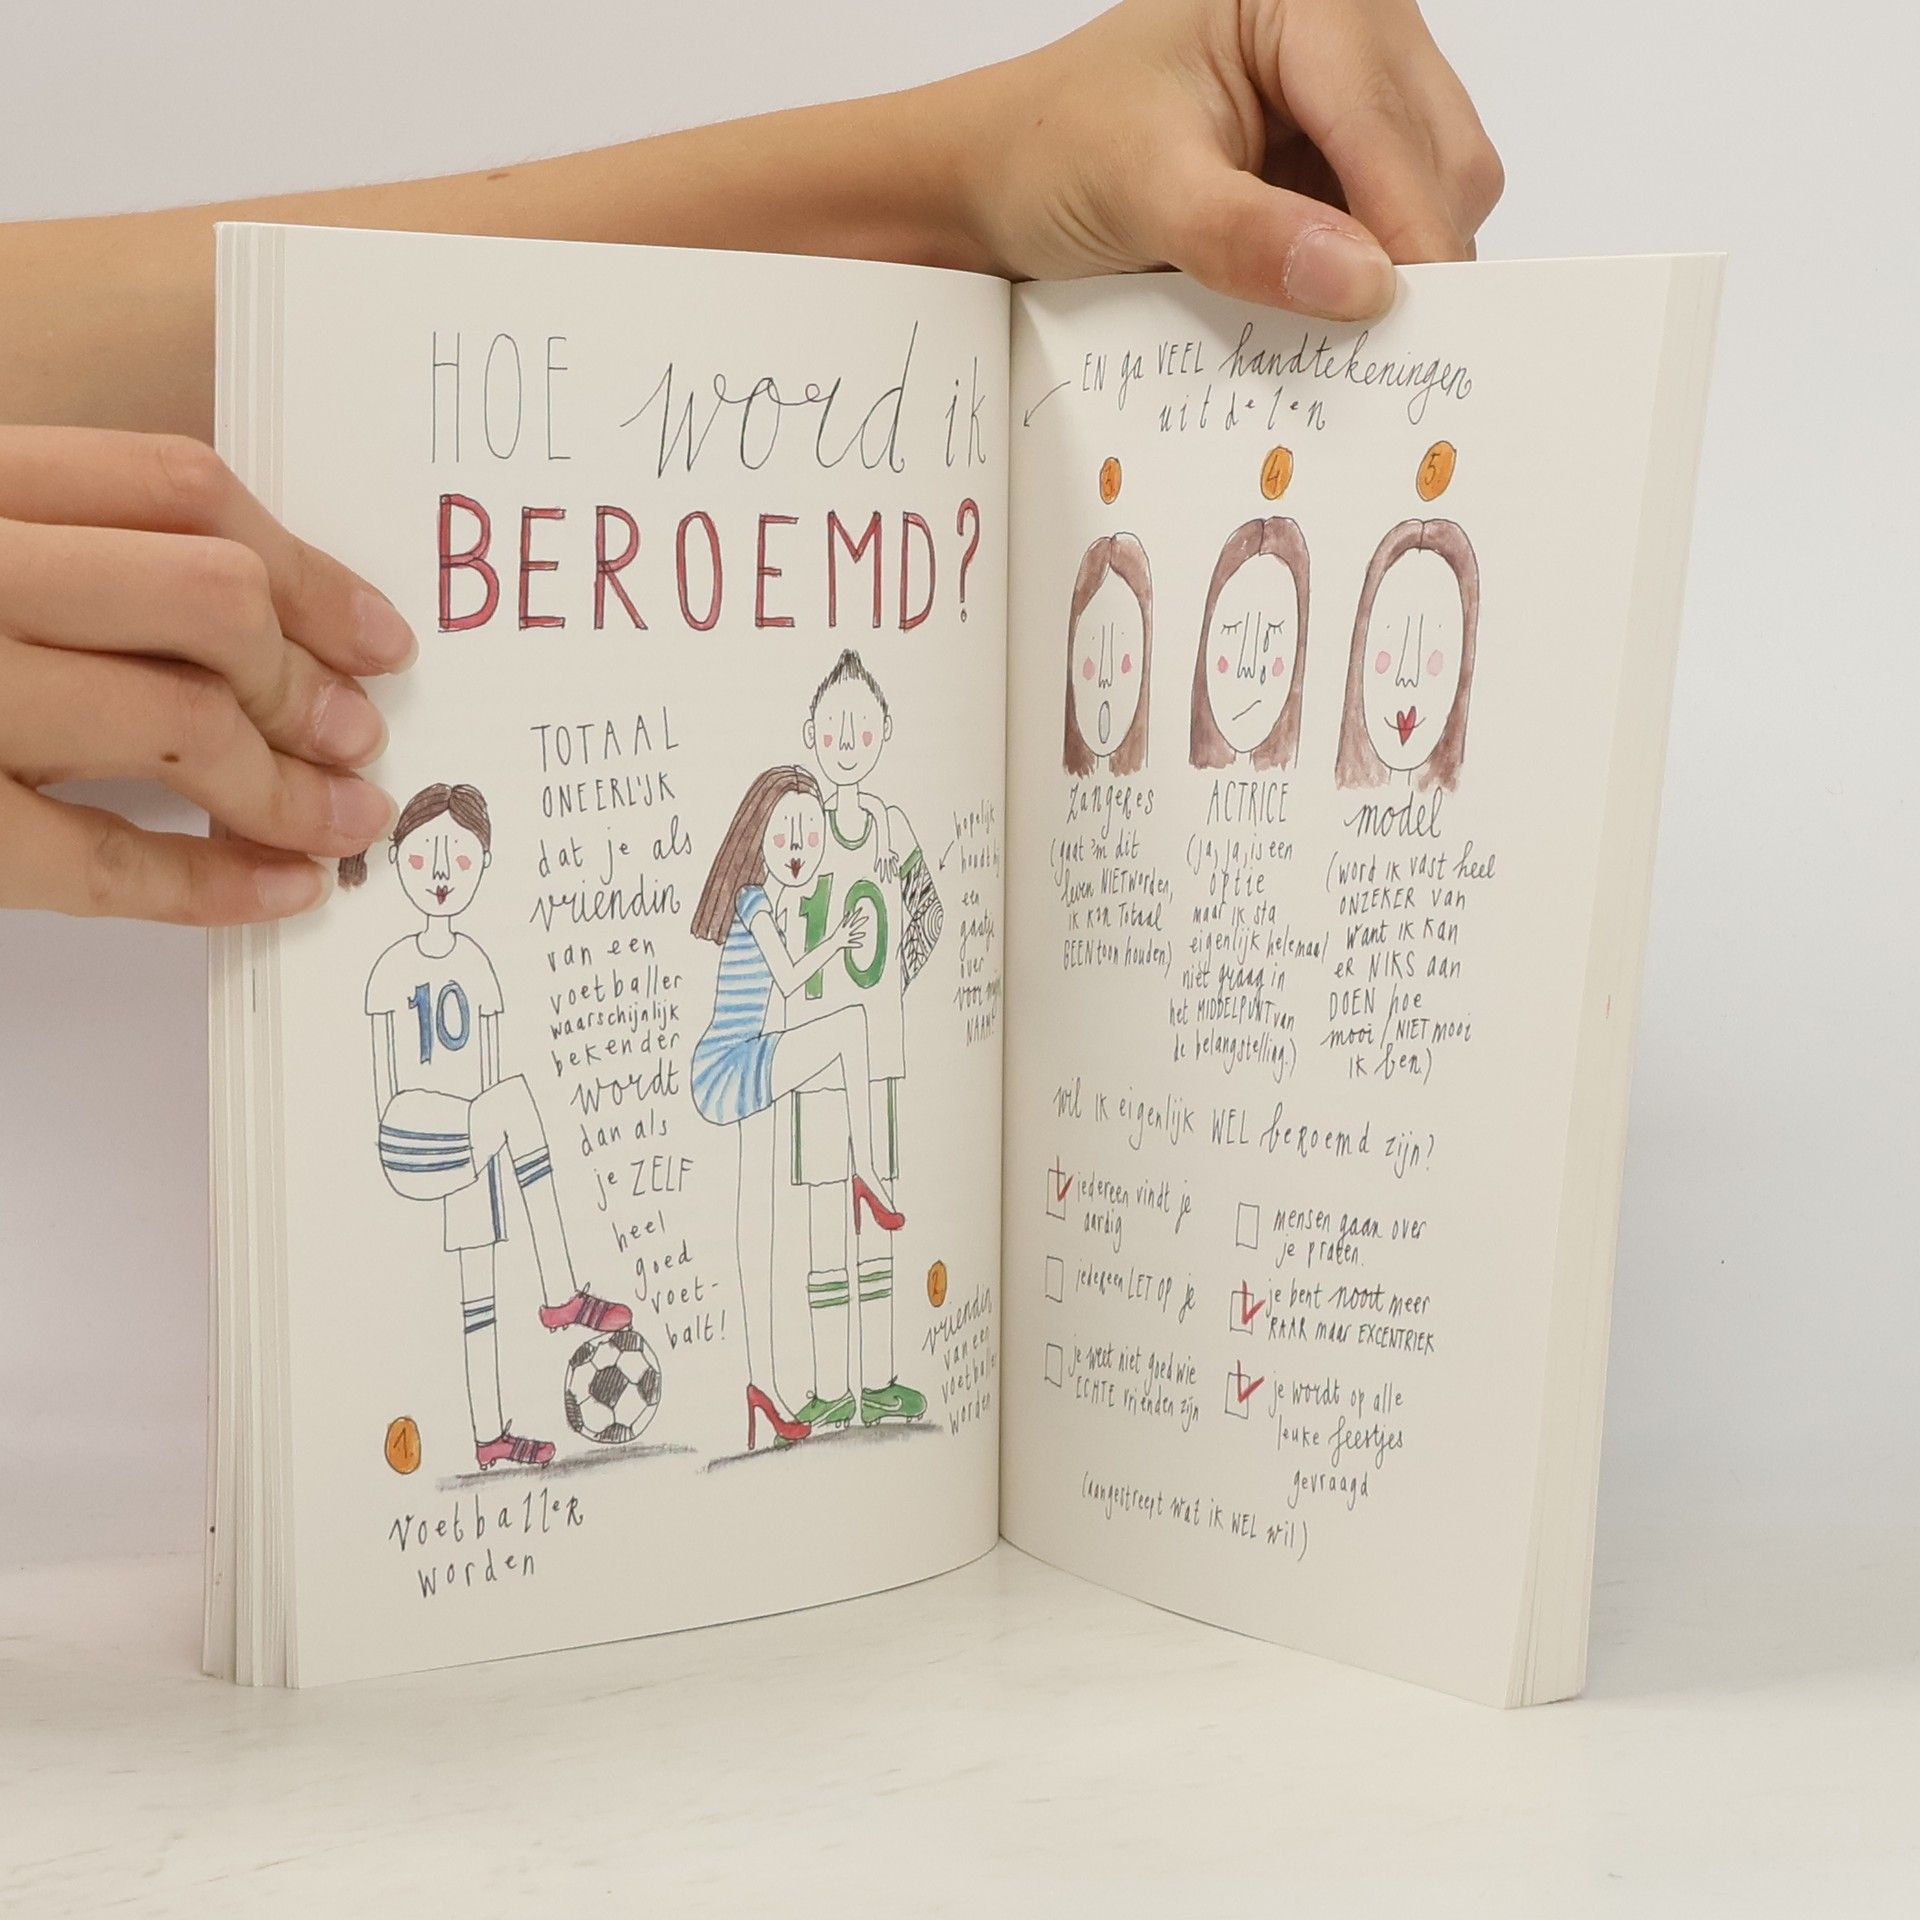 HOE word ik
BEROEMD?
TOTAAL
ONEERLIJK
dat je als
vriendin
van een
voetballer
waarschijnlijk
bekender
wordt
dan als
je ZELF
heel
goed
voet-
balt!
10
10
hopelijk
houdt hij
een
gaatje
over
voor mijn
NAAM?
1.
voetballer
worden
2.
vriendin
van een
voetballer
worden
EN ga VEEL handtekeningen
uitdelen
3.
4.
5.
zangeres
(gaat 'm dit
leven NIET worden,
ik kan Totaal
GEEN toon houden)
ACTRICE
(ja, ja, is een
optie
maar ik sta
eigenlijk helemaal
niet graag in
het MIDDELPUNT van
de belangstelling.)
model
(word ik vast heel
ONZEKER van
want ik kan
er NIKS aan
DOEN hoe
mooi / NIET mooi
ik ben.)
wil ik eigenlijk WEL beroemd zijn?
iedereen vindt je
aardig
iedereen LET OP je
je weet niet goed wie
ECHTE vrienden zijn
mensen gaan over
je praten.
je bent nooit meer
RAAR maar EXCENTRIEK
je wordt op alle
leuke feestjes
gevraagd
(aangestreept wat ik WEL wil)